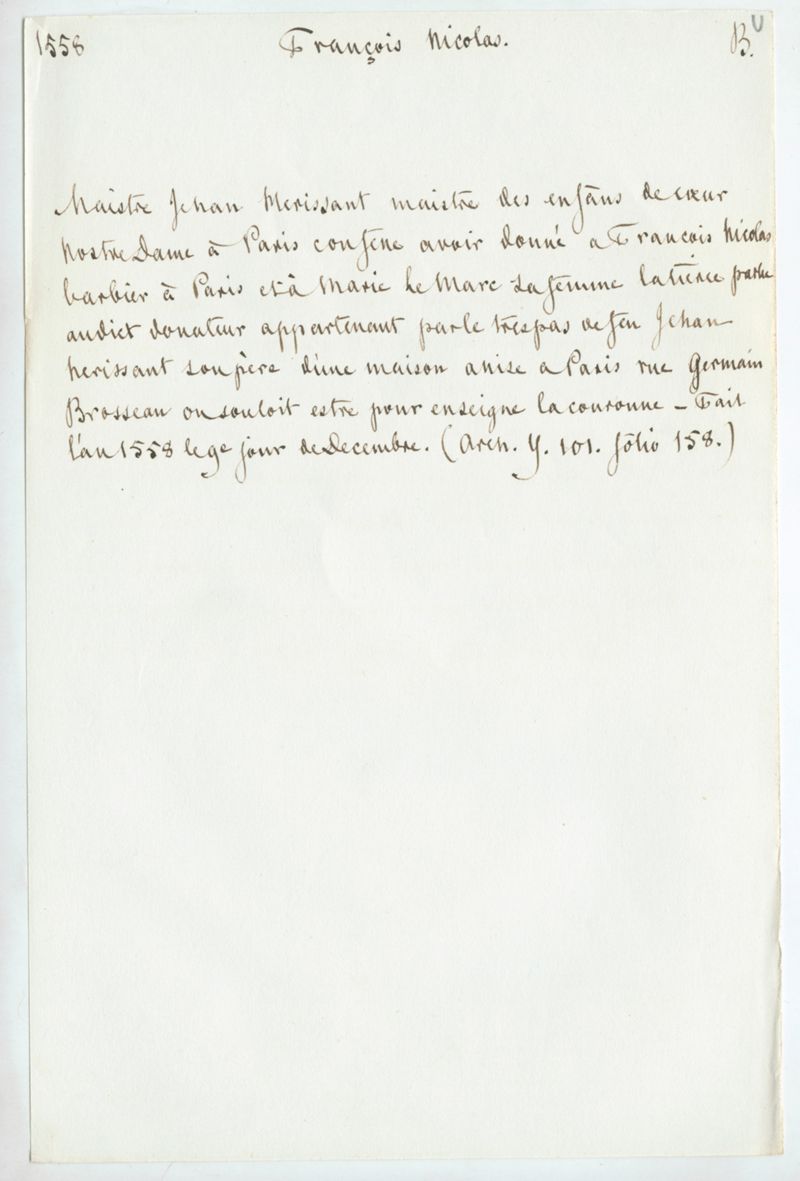 1558 François Nicolas. B.
Maistre Jehan Herissant maistre des enfans de cœur
Nostre Dame à Paris confene avoir donné a Francois Nicolas
barbier à Paris et à Marie Le Marc sa femme la tierce partie
audict donateur appartenant par le trespas de feu Jehan
herissant son père d'une maison anise a Paris rue Germain
Brosseau ou souloit estre pour enseigne la couronne – Fait
l'an 1558 le 9e jour de Decembre. (Arch. Y. 101. folio 158.)